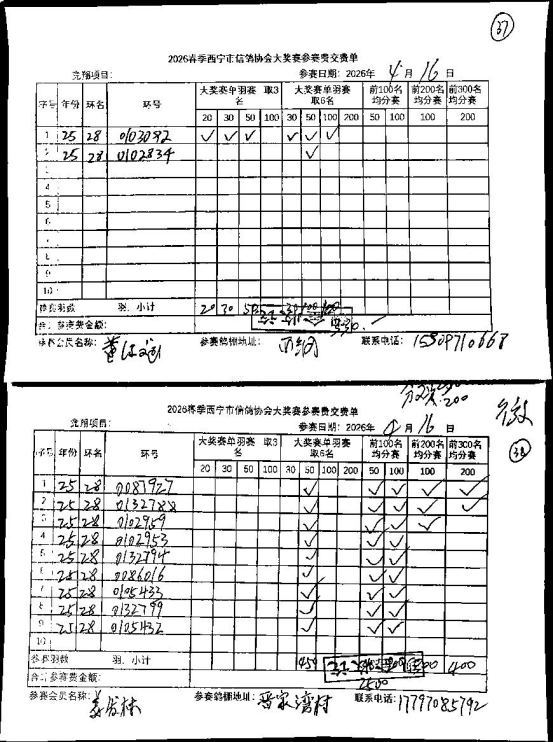 37
2026春季西宁市信鸽协会大奖赛参赛费交费单
竞翔项目： 参赛日期：2026年 4 月 16 日
序号 年份 环名 环号 大奖赛单羽赛 取3名 大奖赛单羽赛 取6名 前100名均分赛 前200名均分赛 前300名均分赛
20 30 50 100 30 50 100 200 50 100 100 200
1 25 28 0103092 ✓ ✓ ✓ ✓ ✓ ✓
2 25 28 0102834 ✓
3
4
5
6
7
8
9
10
参赛羽数 羽. 小计 20 30 50 30 100 100
合计参赛费金额： 330
参赛会员名称： 参赛鸽棚地址： 联系电话：
200
2026春季西宁市信鸽协会大奖赛参赛费交费单
38
竞翔项目： 参赛日期：2026年 4 月 16 日
序号 年份 环名 环号 大奖赛单羽赛 取3名 大奖赛单羽赛 取6名 前100名均分赛 前200名均分赛 前300名均分赛
20 30 50 100 30 50 100 200 50 100 100 200
1 25 28 0087927 ✓ ✓ ✓ ✓ ✓
2 25 28 0132788 ✓ ✓ ✓ ✓ ✓
3 25 28 0102959 ✓ ✓ ✓ ✓
4 25 28 0102953 ✓ ✓ ✓
5 25 28 0132794 ✓ ✓ ✓
6 25 28 0086016 ✓ ✓ ✓
7 25 28 0105433 ✓ ✓ ✓
8 25 28 0132799 ✓ ✓ ✓
9 25 28 0105432 ✓ ✓ ✓
10
参赛羽数 羽. 小计 450 400
合计参赛费金额： 2500
参赛会员名称： 参赛鸽棚地址：晋家湾村 联系电话：17797085792